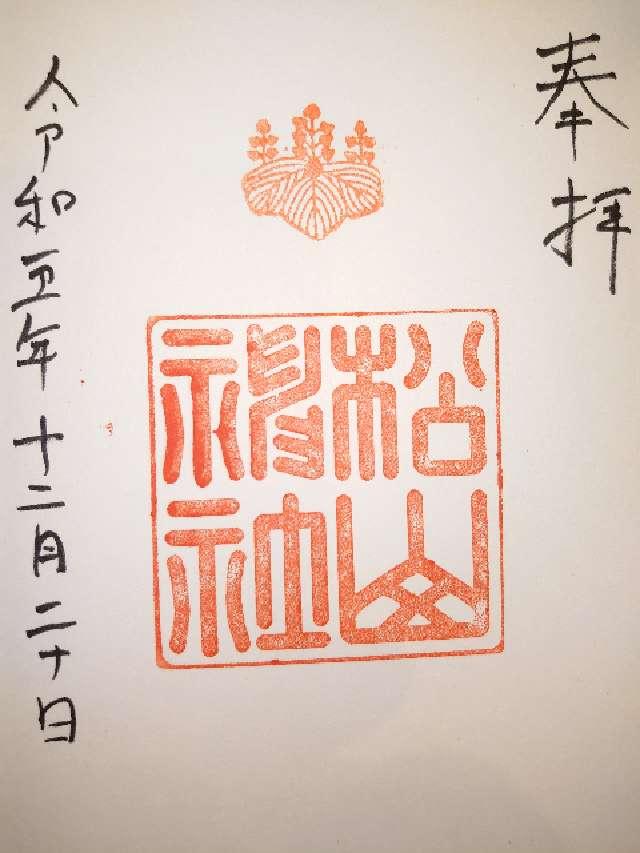 奉拝
松山
神社
令和五年十二月二十日